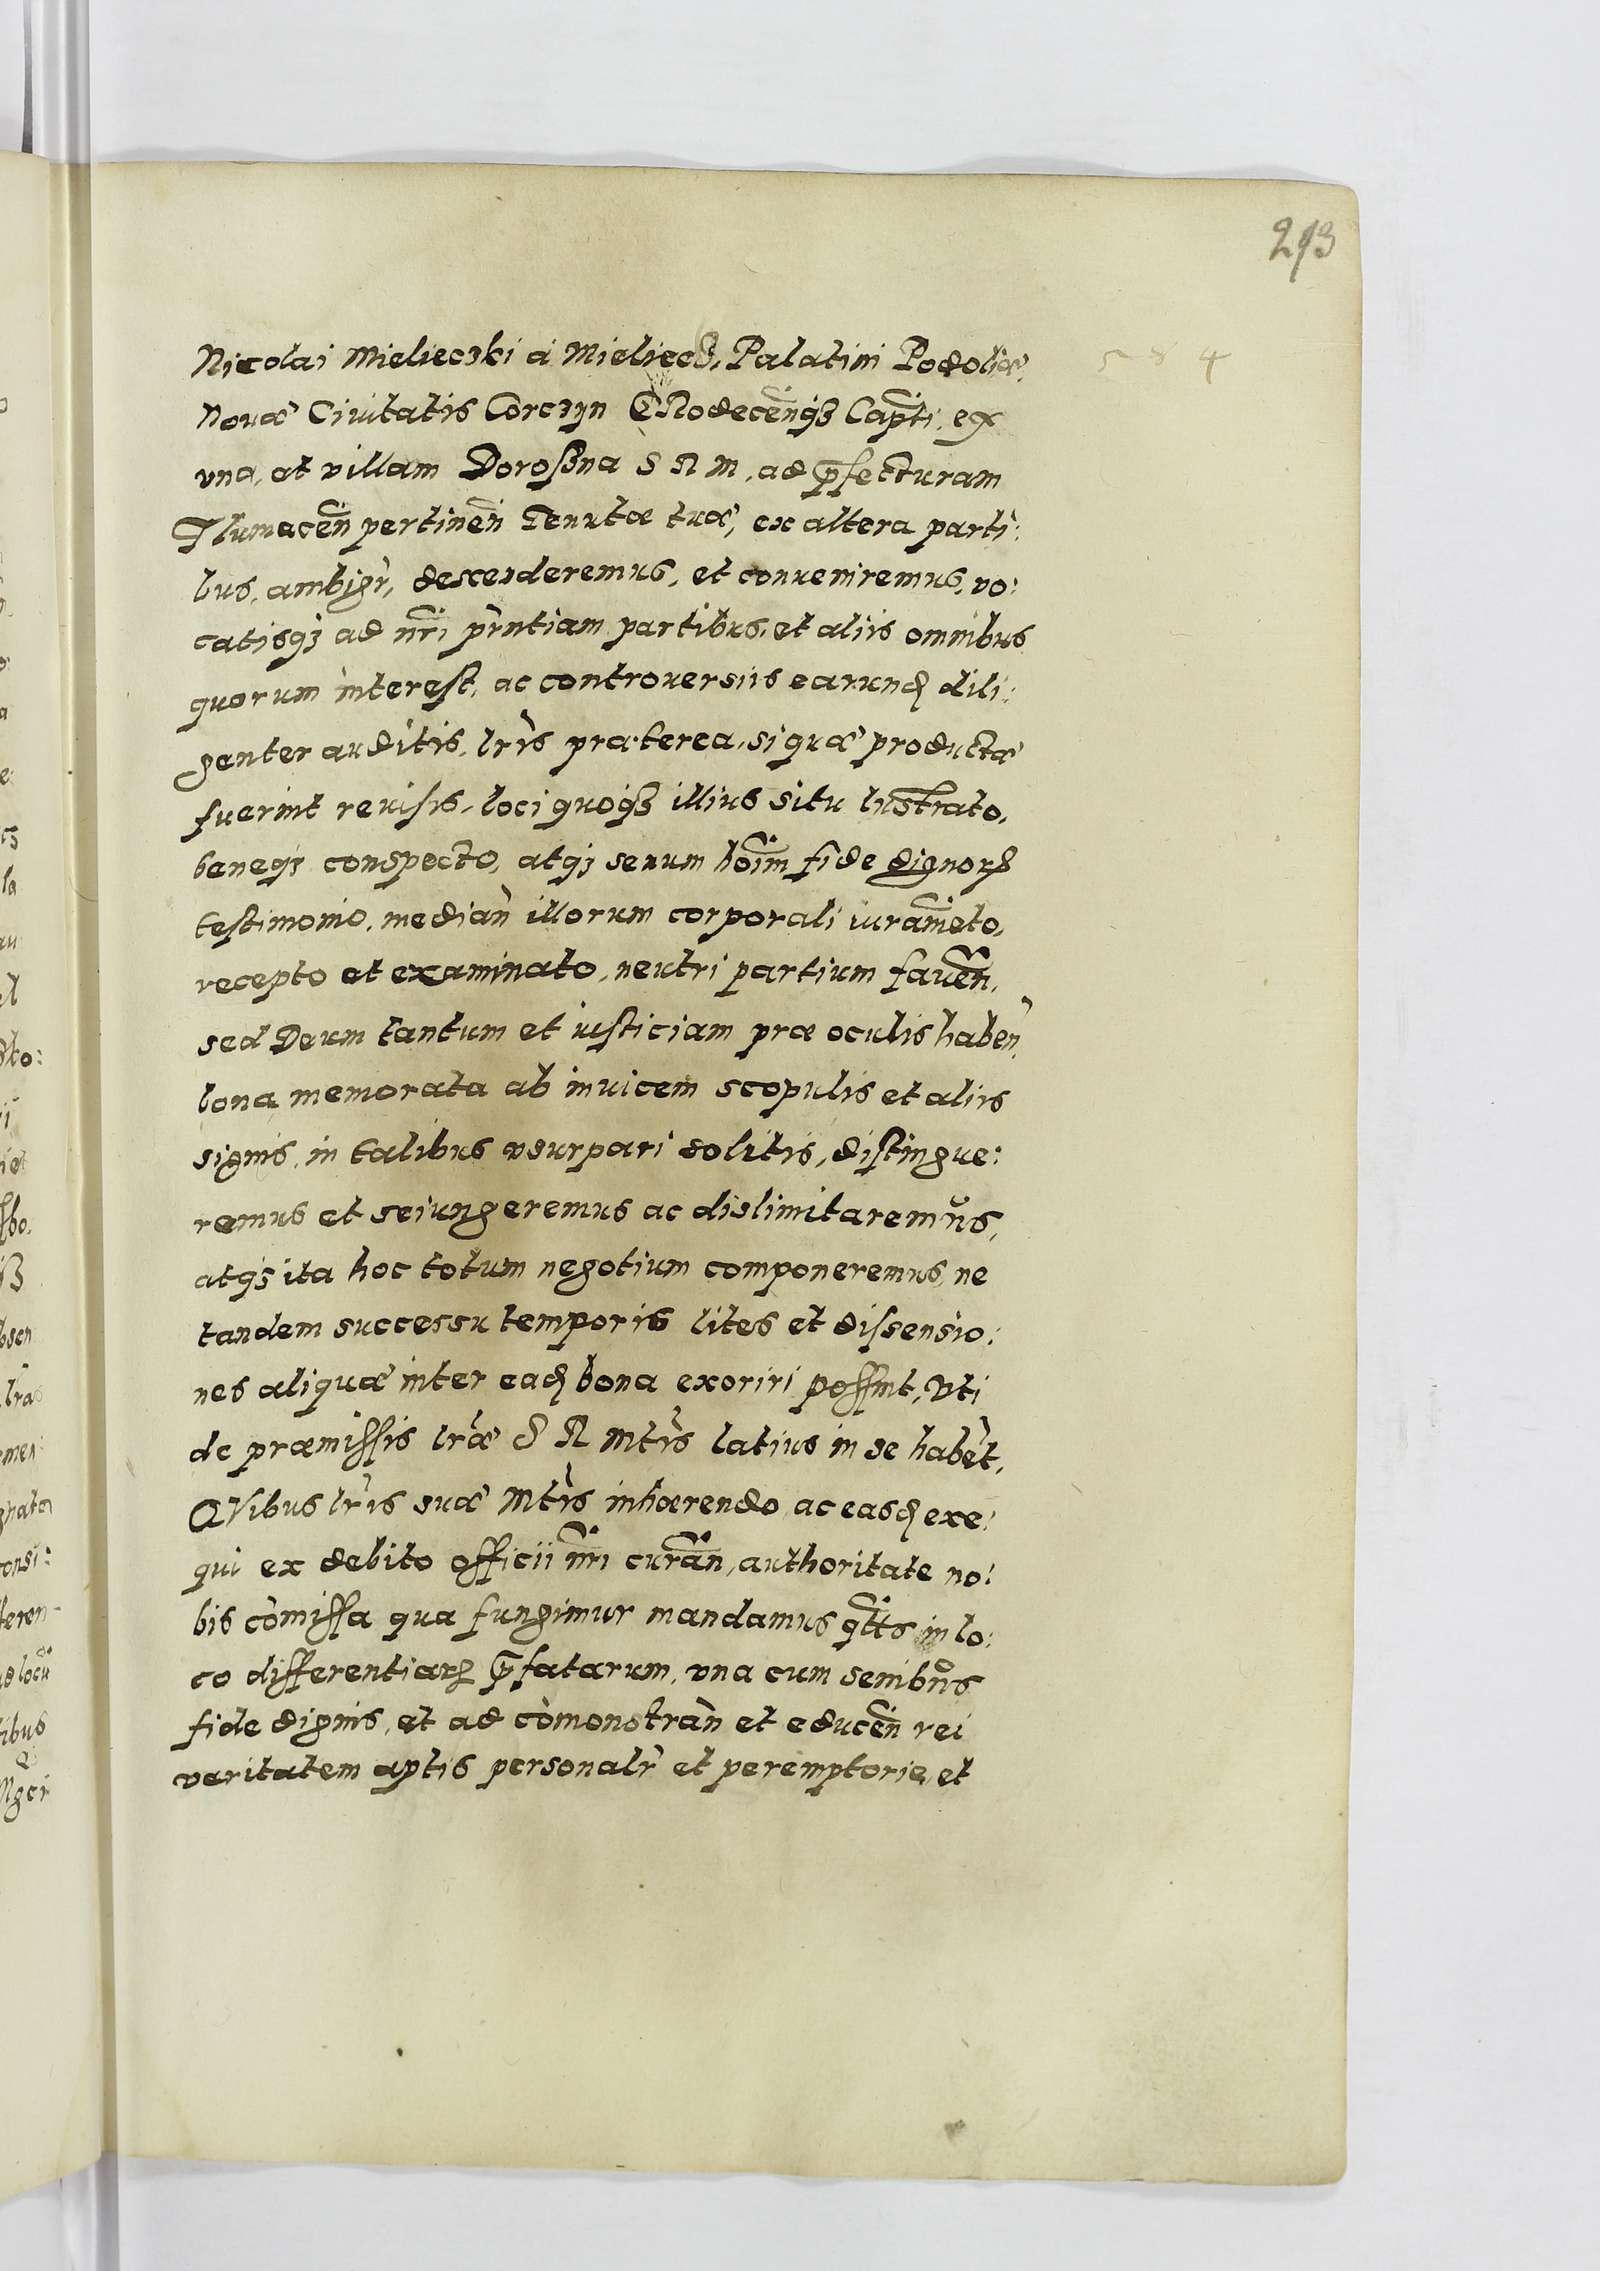 293
584
Nicolai Mielieczki à Mieliecz, Palatini Podoliæ,
Nouæ Ciuitatis Corczyn Grodecen̄q₃ Capti, ex
vna, et villam Doroszna S R M, ad p̄fecturam
Tlumacen̄ pertinen̄ Tenutæ tuæ, ex altera parti:
bus, ambigr̀, descenderemus, et conueniremus, vo:
catisq₃ ad nr̄i pr̀ntiam partibus, et aliis omnibus
quorum interest, ac controuersiis earund dili:
genter auditis, lr̀is præterea, si quæ productæ
fuerint reuisis, loci quoq₃ illius situ lustrato,
beneq₃ conspecto, atq₃ senum hoīm fide dignorꝝ
testimonio, median̄ illorum corporali iuramēto,
recepto et examinato, neutri partium fauen̄,
sed Deum tantum et iusticiam præ oculis haben̄,
bona memorata ab inuicem scopulis et aliis
signis, in talibus vsurpari solitis, distingue:
remus et seiungeremus ac dislimitaremus,
atq₃ ita hoc totum negotium componeremus, ne
tandem successu temporis lites et dissensio:
nes aliquæ inter ead bona exoriri possint, Vti
de præmissis lr̀æ S R Mtìs latius in se habēt,
QVibus lr̀is suæ Mtìs inhærendo, ac easd exe:
qui ex debito officii nr̄i curan̄, authoritate no:
bis com̄issa qua fungimur mandamus qtts in lo:
co differentiarꝝ p̄fatarum, vna cum senibus
fide dignis, et ad com̄onstran̄ et educen̄ rei
veritatem aptis personalr̀ et peremptorie, et